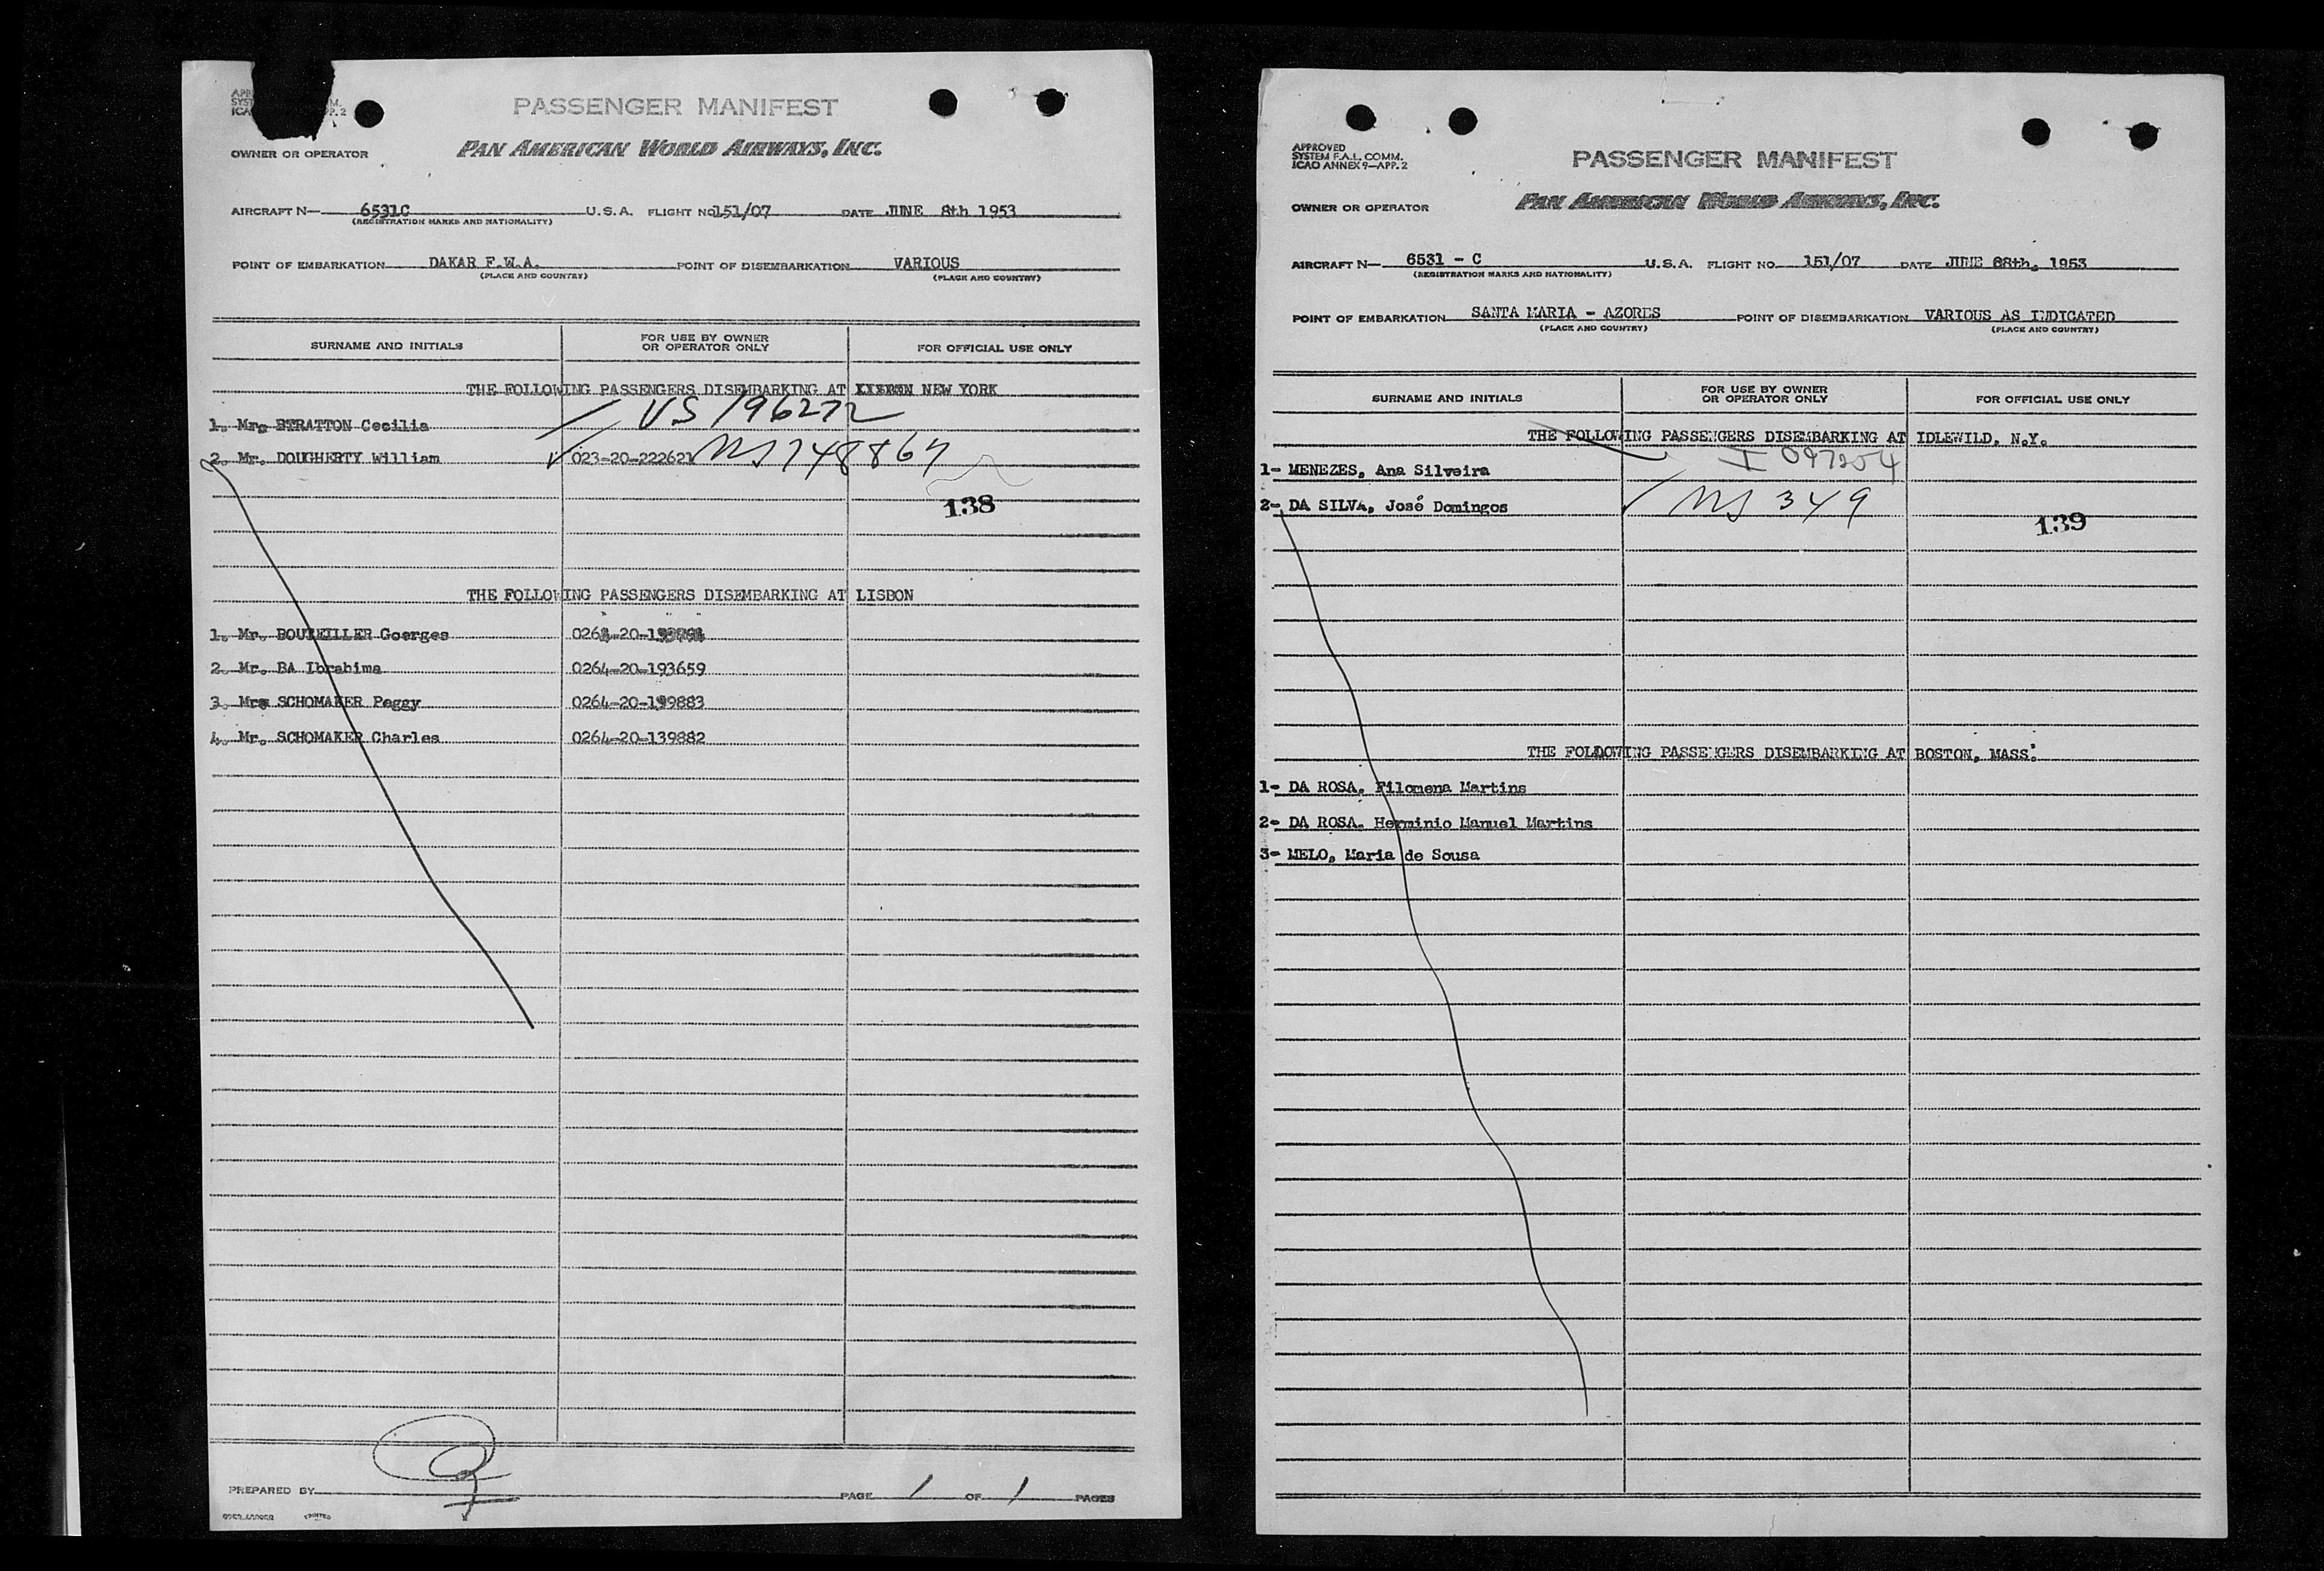 PASSENGER MANIFEST
PAN AMERICAN WORLD AIRWAYS, INC.
OWNER OR OPERATOR
AIRCRAFT N— 6531C U.S.A. FLIGHT NO 151/07 DATE JUNE 8th 1953
(REGISTRATION MARKS AND NATIONALITY)
POINT OF EMBARKATION DAKAR F.W.A. POINT OF DISEMBARKATION VARIOUS
(PLACE AND COUNTRY) (PLACE AND COUNTRY)
SURNAME AND INITIALS FOR USE BY OWNER OR OPERATOR ONLY FOR OFFICIAL USE ONLY
THE FOLLOWING PASSENGERS DISEMBARKING AT NEW YORK
VS 196272
1. Mrs STRATTON Cecilia
2. Mr. DOUGHERTY William 023-20-222621
138
THE FOLLOWING PASSENGERS DISEMBARKING AT LISBON
1. Mr. Goerges
2. Mr. BA Ibrahima 0264-20-193659
3. Mrs SCHOMAKER Peggy 0264-20-139883
4. Mr. SCHOMAKER Charles 0264-20-139882
PREPARED BY PAGE 1 OF 1 PAGES
APPROVED
SYSTEM F.A.L. COMM.
ICAO ANNEX 9—APP. 2
PASSENGER MANIFEST
PAN AMERICAN WORLD AIRWAYS, INC.
OWNER OR OPERATOR
AIRCRAFT N— 6531 - C U.S.A. FLIGHT NO. 151/07 DATE JUNE 08th, 1953
(REGISTRATION MARKS AND NATIONALITY)
POINT OF EMBARKATION SANTA MARIA - AZORES POINT OF DISEMBARKATION VARIOUS AS INDICATED
(PLACE AND COUNTRY) (PLACE AND COUNTRY)
SURNAME AND INITIALS FOR USE BY OWNER OR OPERATOR ONLY FOR OFFICIAL USE ONLY
THE FOLLOWING PASSENGERS DISEMBARKING AT IDLEWILD, N.Y.
1- MENEZES, Ana Silveira I 097254
2- DA SILVA, José Domingos 349
139
THE FOLLOWING PASSENGERS DISEMBARKING AT BOSTON, MASS.
1- DA ROSA, Filomena Martins
2- DA ROSA. Herminio Manuel Martins
3- MELO, Maria de Sousa